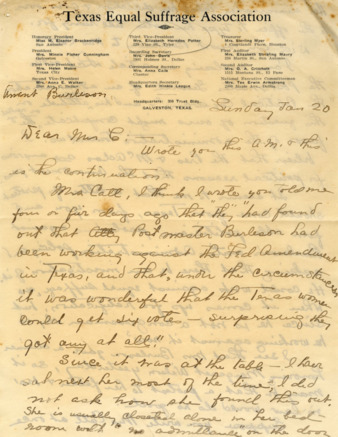 Texas Equal Suffrage Association
Honorary President
Miss M. Eleanor Brackenridge
San Antonio
President
Mrs. Minnie Fisher Cunningham
Galveston
First Vice-President
Mrs. Helen Moore
Texas City
Second Vice-President
Mrs. Anna B. Walker
Third Vice-President
Mrs. Elizabeth Herndon Potter
Recording Secretary
Mrs. John Davis
Corresponding Secretary
Headquarters Secretary
Mrs. Edith Hinkle League
Headquarters:
GALVESTON, TEXAS.
Treasurer
First Auditor
Second Auditor
Mrs. Tex Erwin Armstrong
Sunday Jan 20
Burleson
Dear Mrs C—
Wrote you this A.M. & this
is the continuation
Mrs Catt, I think I wrote you, told me
four or five days ago that they "had found
out that Atty Postmaster Burleson had
been working against the Fed Amendment
in Texas, and that, under the circumstances
it was wonderful that the Texas women
could get six votes — surprising they
got any at all."
Since it was at the table — I have
sat next her most of the time, I did
not ask how she found this out.
She is usually closeted alone in her bed
room with "no admittance" on the door